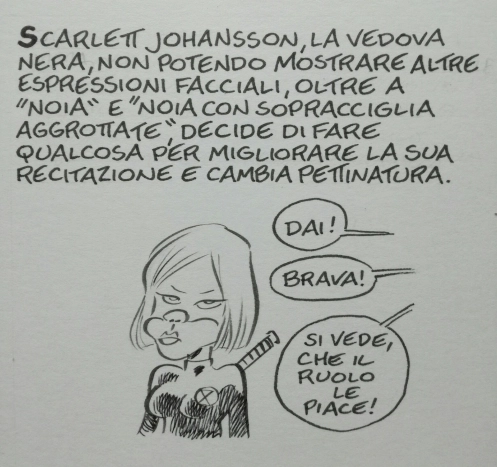 SCARLETT JOHANSSON, LA VEDOVA
NERA, NON POTENDO MOSTRARE ALTRE
ESPRESSIONI FACCIALI, OLTRE A
"NOIA" E "NOIA CON SOPRACCIGLIA
AGGROTTATE", DECIDE DI FARE
QUALCOSA PER MIGLIORARE LA SUA
RECITAZIONE E CAMBIA PETTINATURA.
DAI!
BRAVA!
SI VEDE,
CHE IL
RUOLO
LE
PIACE!